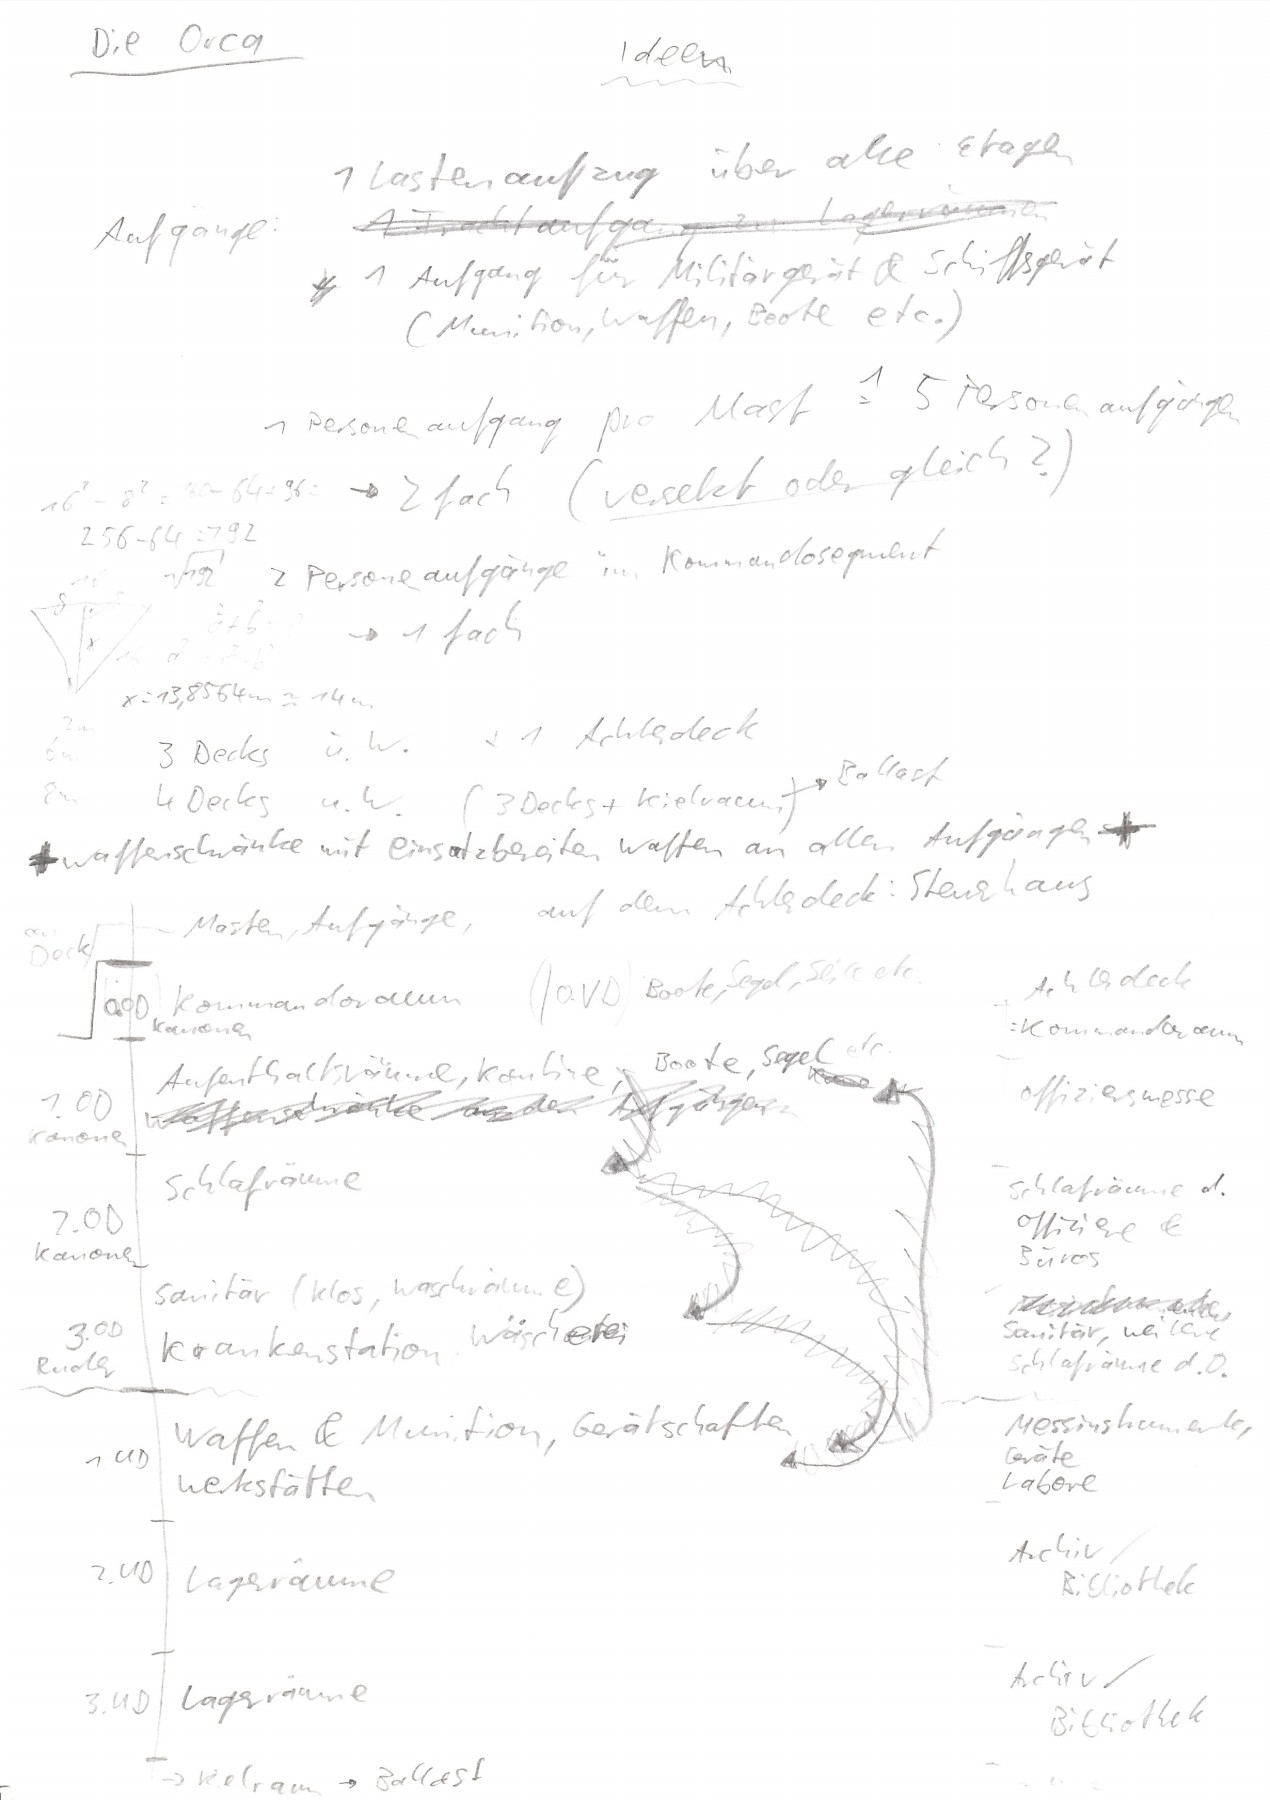 Die Orca
Ideen
1 Lastenaufzug über alle Etagen
Aufgänge:
1 Frachtaufgang zu Lagerräumen
* 1 Aufgang für Militärgerät & Schiffsgerät
(Munition, Waffen, Boote etc.)
1 Personenaufgang pro Mast ≙ 5 Personenaufgängen
→ 2 fach (versetzt oder gleich?)
256-64=192
√192 2 Personenaufgänge im Kommandosegment
→ 1 fach
x=13,8564m ≈ 14m
3 Decks ü.W. + 1 Achterdeck
8m 4 Decks u.W. (3 Decks + Kielraum) → Ballast
* Waffenschränke mit einsatzbereiten Waffen an allen Aufgängen *
Deck Masten, Aufgänge, auf dem Achterdeck: Steuerhaus
0.OD Kommandoraum (/0.VD) Boote, Segel, Seile etc. Achterdeck
Kanonen =Kommandoraum
Aufenthaltsräume, Kantine, Boote, Segel etc.
1.OD Waffenschränke an den Aufgängen Offiziersmesse
Kanonen
Schlafräume Schlafräume d.
2.OD Offiziere &
Kanonen Büros
Sanitär (Klos, Waschräume)
3.OD Krankenstation Wäscherei Sanitär, weitere
Ruder Schlafräume d.O.
Waffen & Munition, Gerätschaften Messinstrumente,
1 UD Geräte
Werkstätten Labore
2.UD Lagerräume Archiv/
Bibliothek
3.UD Lagerräume Archiv/
Bibliothek
→ Kielraum → Ballast